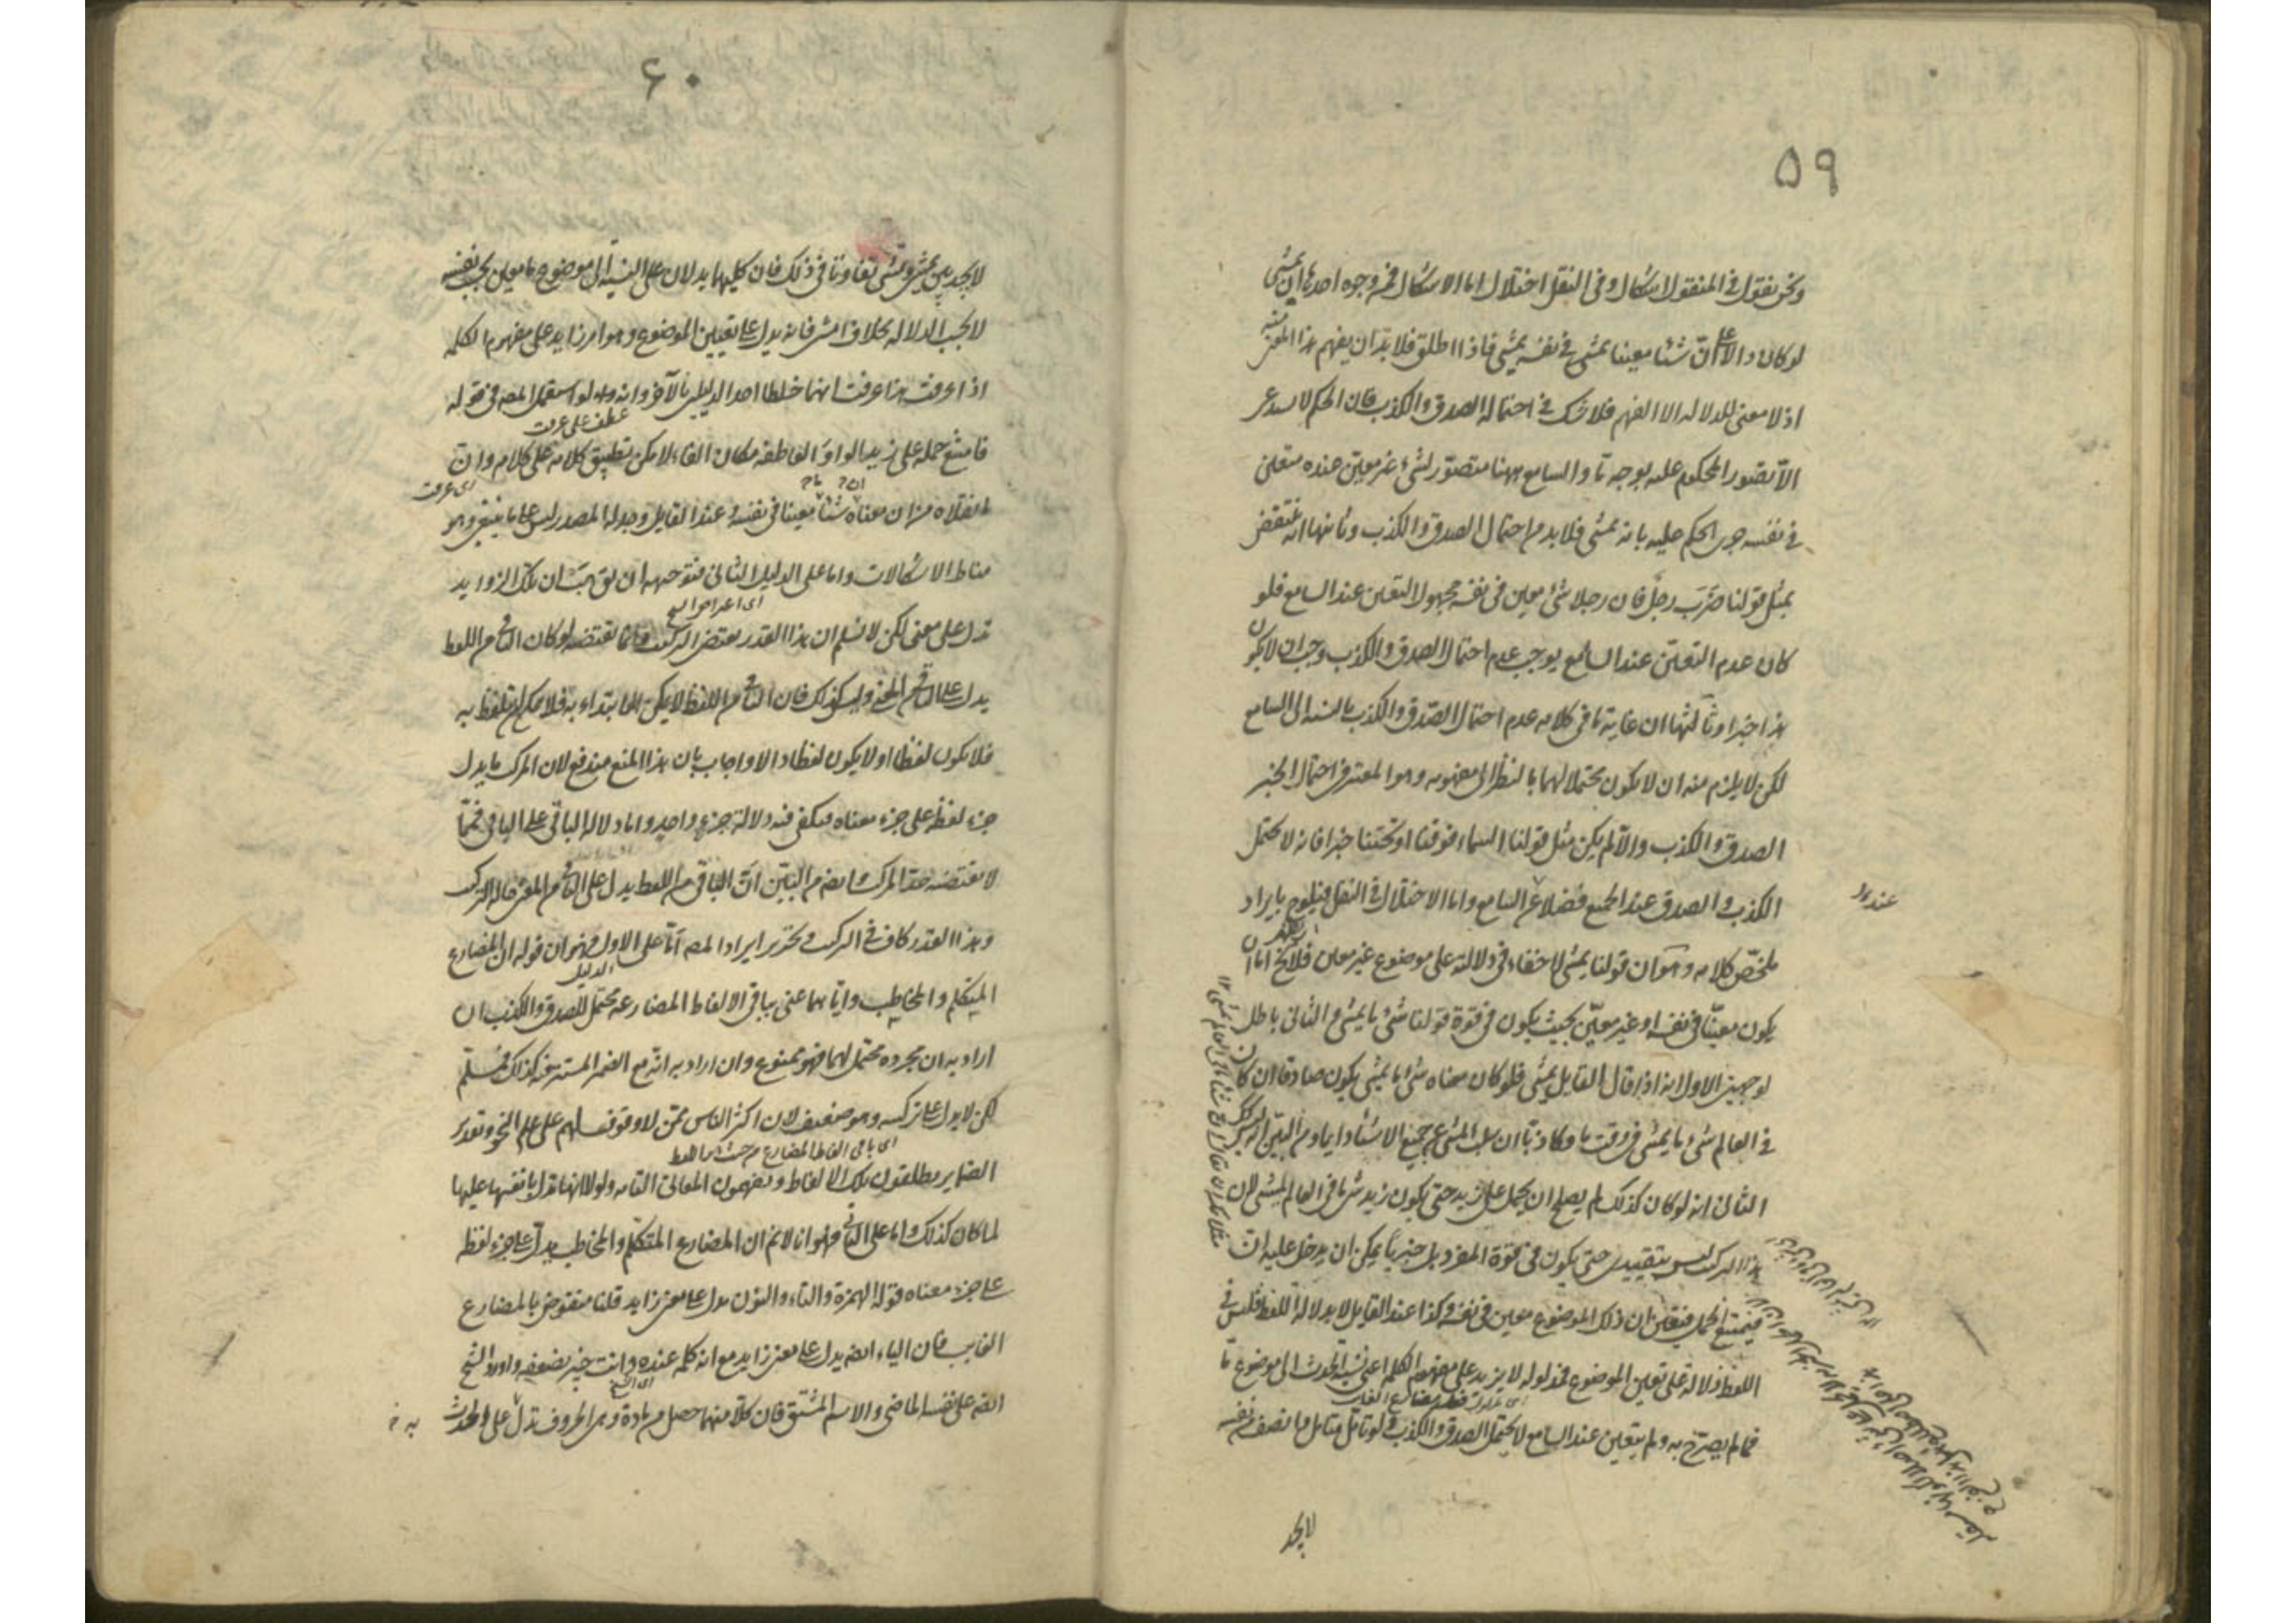 ٥٩
ونحن نقول في المنقول اشكال وفي النقل اختلال اما الاشكال فمن وجوه احدها ان يمشي
لو كان دالا على ان شيئا معينا يمشي في نفسه يمشي فاذا اطلق فلا بد ان يفهم هذا المعنى منه
اذ لا معنى للدلالة الا الفهم فلا شك في احتماله الصدق والكذب فان الحكم لا يستدعي
الا تصور المحكوم عليه بوجه ما والسامع ههنا متصور لشيء غير معين عنده متعين
في نفسه جرى الحكم عليه بانه يمشي فلا بد من احتمال الصدق والكذب وثانيها انه منتقض
بمثل قولنا ضرب رجل فان رجلا شيء معين في نفسه مجهول التعين عند السامع فلو
كان عدم التعين عند السامع يوجب عدم احتمال الصدق والكذب وجب ان لا يكون
هذا خبرا وثالثها ان غاية ما في كلامه عدم احتمال الصدق والكذب بالنسبة الى السامع
لكن لا يلزم منه ان لا يكون محتملا لهما بالنظر الى مفهومه وهو المعتبر في احتمال الخبر
الصدق والكذب والا لم يكن مثل قولنا السماء فوقنا او تحتنا خبرا فانه لا يحتمل
الكذب او الصدق عند الجميع فضلا عن السامع واما الاختلال في النقل فيلوح بايراد
عند
ملخص كلامه وهو ان قولنا يمشي لا خفاء في دلالته على موضوع غير معين فلا يخ اما ان
يكون معينا في نفسه او غير معين بحيث يكون في قوة قولنا شيء ما يمشي والثاني باطل
لوجهين الاول انه اذا قال القايل يمشي فلو كان معناه شيء ما يمشي يكون صادقا ان كان
في العالم شيء ما يمشي في وقت ما وكاذبا ان سلب المشي عن جميع الاشياء دايما ومن البين انه ليس كذلك
الثاني انه لو كان كذلك لم يصلح ان يحمل على زيد حتى يكون زيد شيء ما في العالم يمشي لان
هذا التركيب ليس بتقييدي حتى يكون في قوة المفرد بل خبريا يمكن ان يدخل عليه ان
فيمتنع الحمل فتعين ان ذلك الموضوع معين في نفسه وكذا عند القايل لا بدلالة اللفظ فليس في
اللفظ دلالة على تعين الموضوع فمدلوله لا يزيد على مفهوم الكلمة اعني نسبة الحدث الى موضوع ما
فما لم يصرح به ولم يتعين عند السامع لا يحتمل الصدق والكذب ولو تأمل متأمل وانصف من نفسه
لا يجد
٦٠
لا يجد بين يمشي وتمشي تفاوتا في ذلك فان كليهما يدلان على النسبة الى موضوع ما معين بحسب نفسه
لا بحسب الدلالة بخلاف امشي فانه يدل على تعيين الموضوع وهو امر زايد على مفهوم الكلمة
اذا عرفت هذا عرفت انهما خلطا احد الدليلين بالآخر وانه لو استعمل المصه في قوله
عطف على عرفت
فامتنع حمله على زيد الواو العاطفة مكان الفاء لامكن تطبيق كلامه على كلام وان
اي عرفت
ما نقلاه من ان معناه شيئا معينا في نفسه وعند القايل وجدله المصدر ليس على ما ينبغي وهو
مناط الاشكالات واما على الدليل الثاني فتوجيهه ان يق هب ان تلك الزوايد
تدل على معنى لكن لا نسلم ان هذا القدر يقتضي التركيب وانما يقتضيه لو كان الباقي من اللفظ
يدل على الباقي من المعنى وليس كذلك فان الباقي من اللفظ لا يمكن الابتداء به فلا يمكن ان يتلفظ به
فلا يكون لفظا او لا يكون لفظا دالا واجاب بان هذا المنع مندفع لان المركب ما يدل
جزء لفظه على جزء معناه فيكفي فيه دلالة جزء واحد واما دلالة الباقي على الباقي فمما
لا يقتضيه حد المركب وايضا من البين ان الباقي من اللفظ يدل على الباقي من المعنى حالة التركيب
وهذا القدر كاف في التركيب وتحرير ايراد المصه اما على الاول فهو ان قوله ان المضارع
الدليل
المتكلم والمخاطب واياهما عنى بباقي الالفاظ المضارعة محتمل للصدق والكذب ان
اراد به ان مجرده محتمل لهما فهو ممنوع وان اراد به انه مع الضمير المستتر فيه كذلك فمسلم
لكن لا يدل على تركيبه وهو ضعيف لان اكثر الناس ممن لا وقوف لهم على علم النحو وتقدير
اي باقي الفاظ المضارع من حيث انها لفظ
الضماير يطلقون تلك الالفاظ ويفهمون المعاني التامة ولولا انها تدل بانفسها عليها
لما كان كذلك واما على الثاني فهو انا لا نم ان المضارع المتكلم والمخاطب يدل على جزء لفظه
على جزء معناه قوله الهمزة والتاء والنون تدل على معنى زايد قلنا منقوض بالمضارع
الغايب فان الياء ايضه يدل على معنى زايد مع انه كلمة عنده وانت خبير بضعفه واورد الشيخ
اي الشيخ
ايضه على نفسه الماضي والاسم المشتق فان كلا منهما حصل من مادة وهي الحروف تدل على الحدث